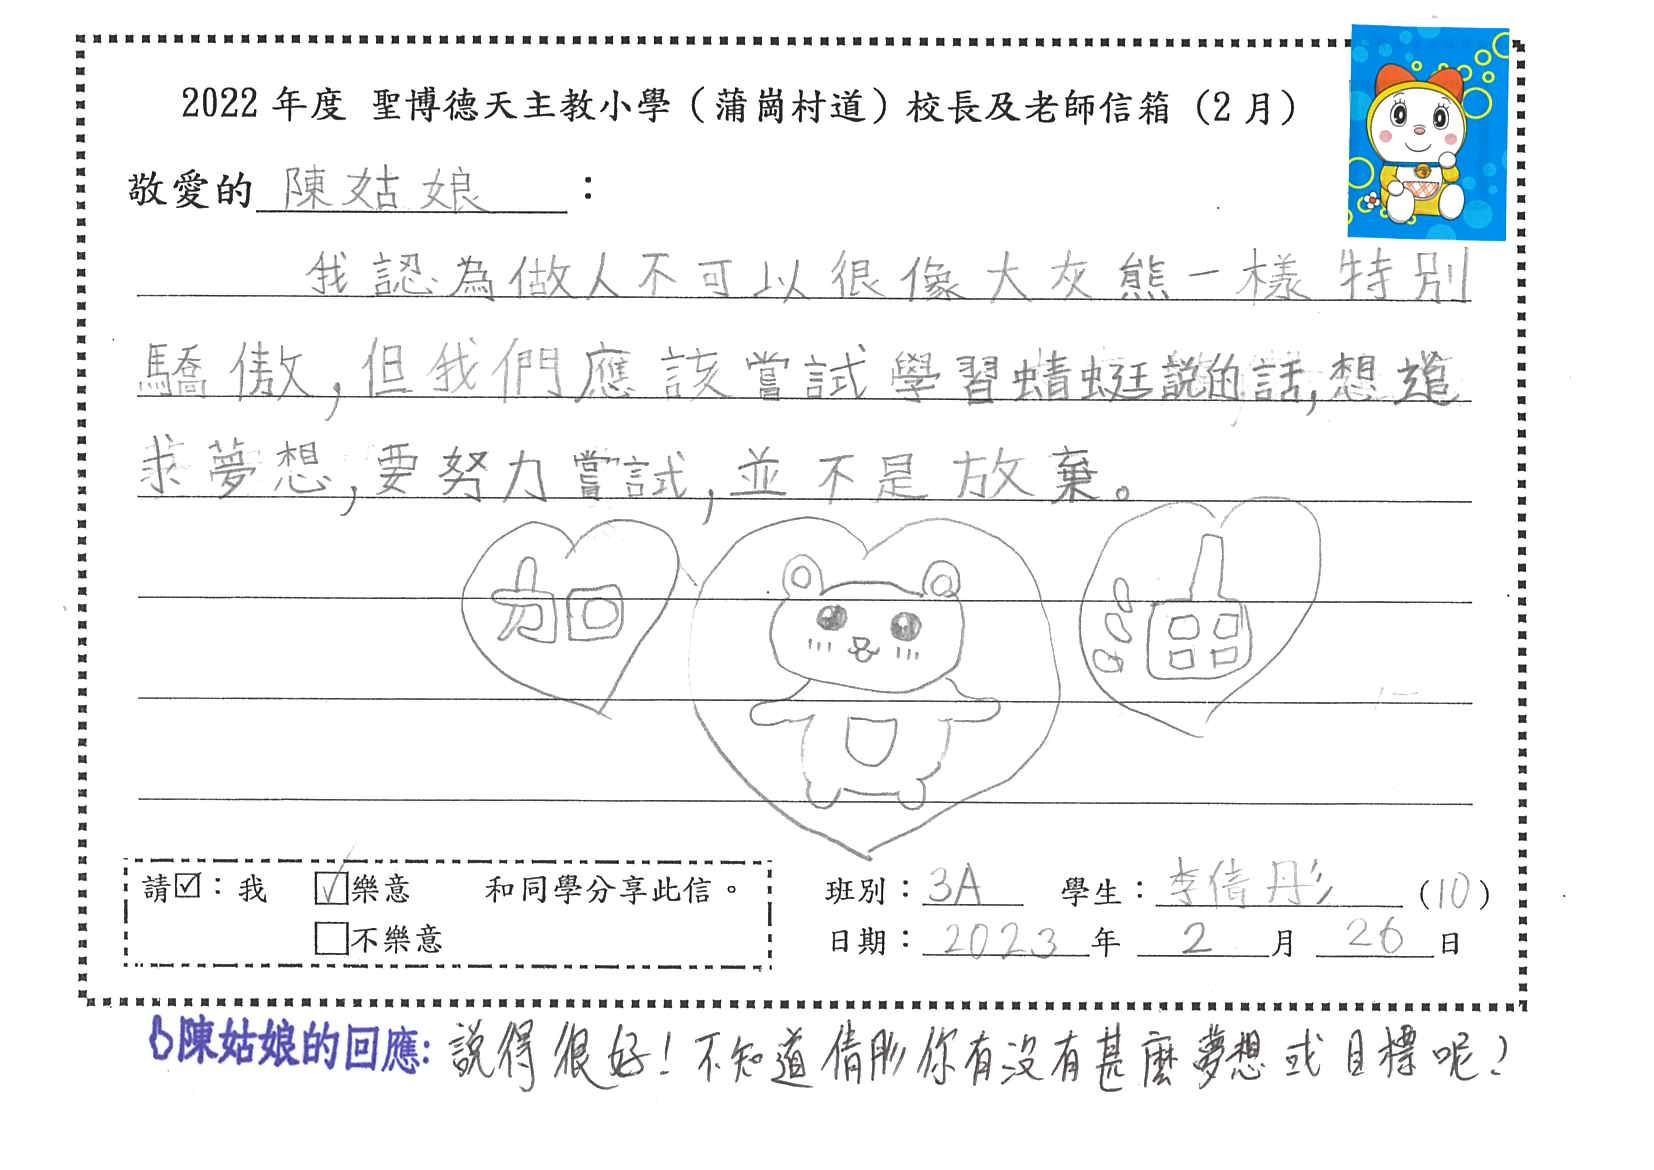 2022 年度 聖博德天主教小學（蒲崗村道）校長及老師信箱（2 月）
敬愛的 陳姑娘 ：
我認為做人不可以很像大灰熊一樣特別
驕傲，但我們應該嘗試學習蜻蜓說的話，想追
求夢想，要努力嘗試，並不是放棄。
加油
請☑：我 ☑樂意 和同學分享此信。
☐不樂意
班別：3A 學生：李倩彤（10）
日期：2023 年 2 月 26 日
陳姑娘的回應：說得很好！不知道倩彤你有沒有甚麼夢想或目標呢？